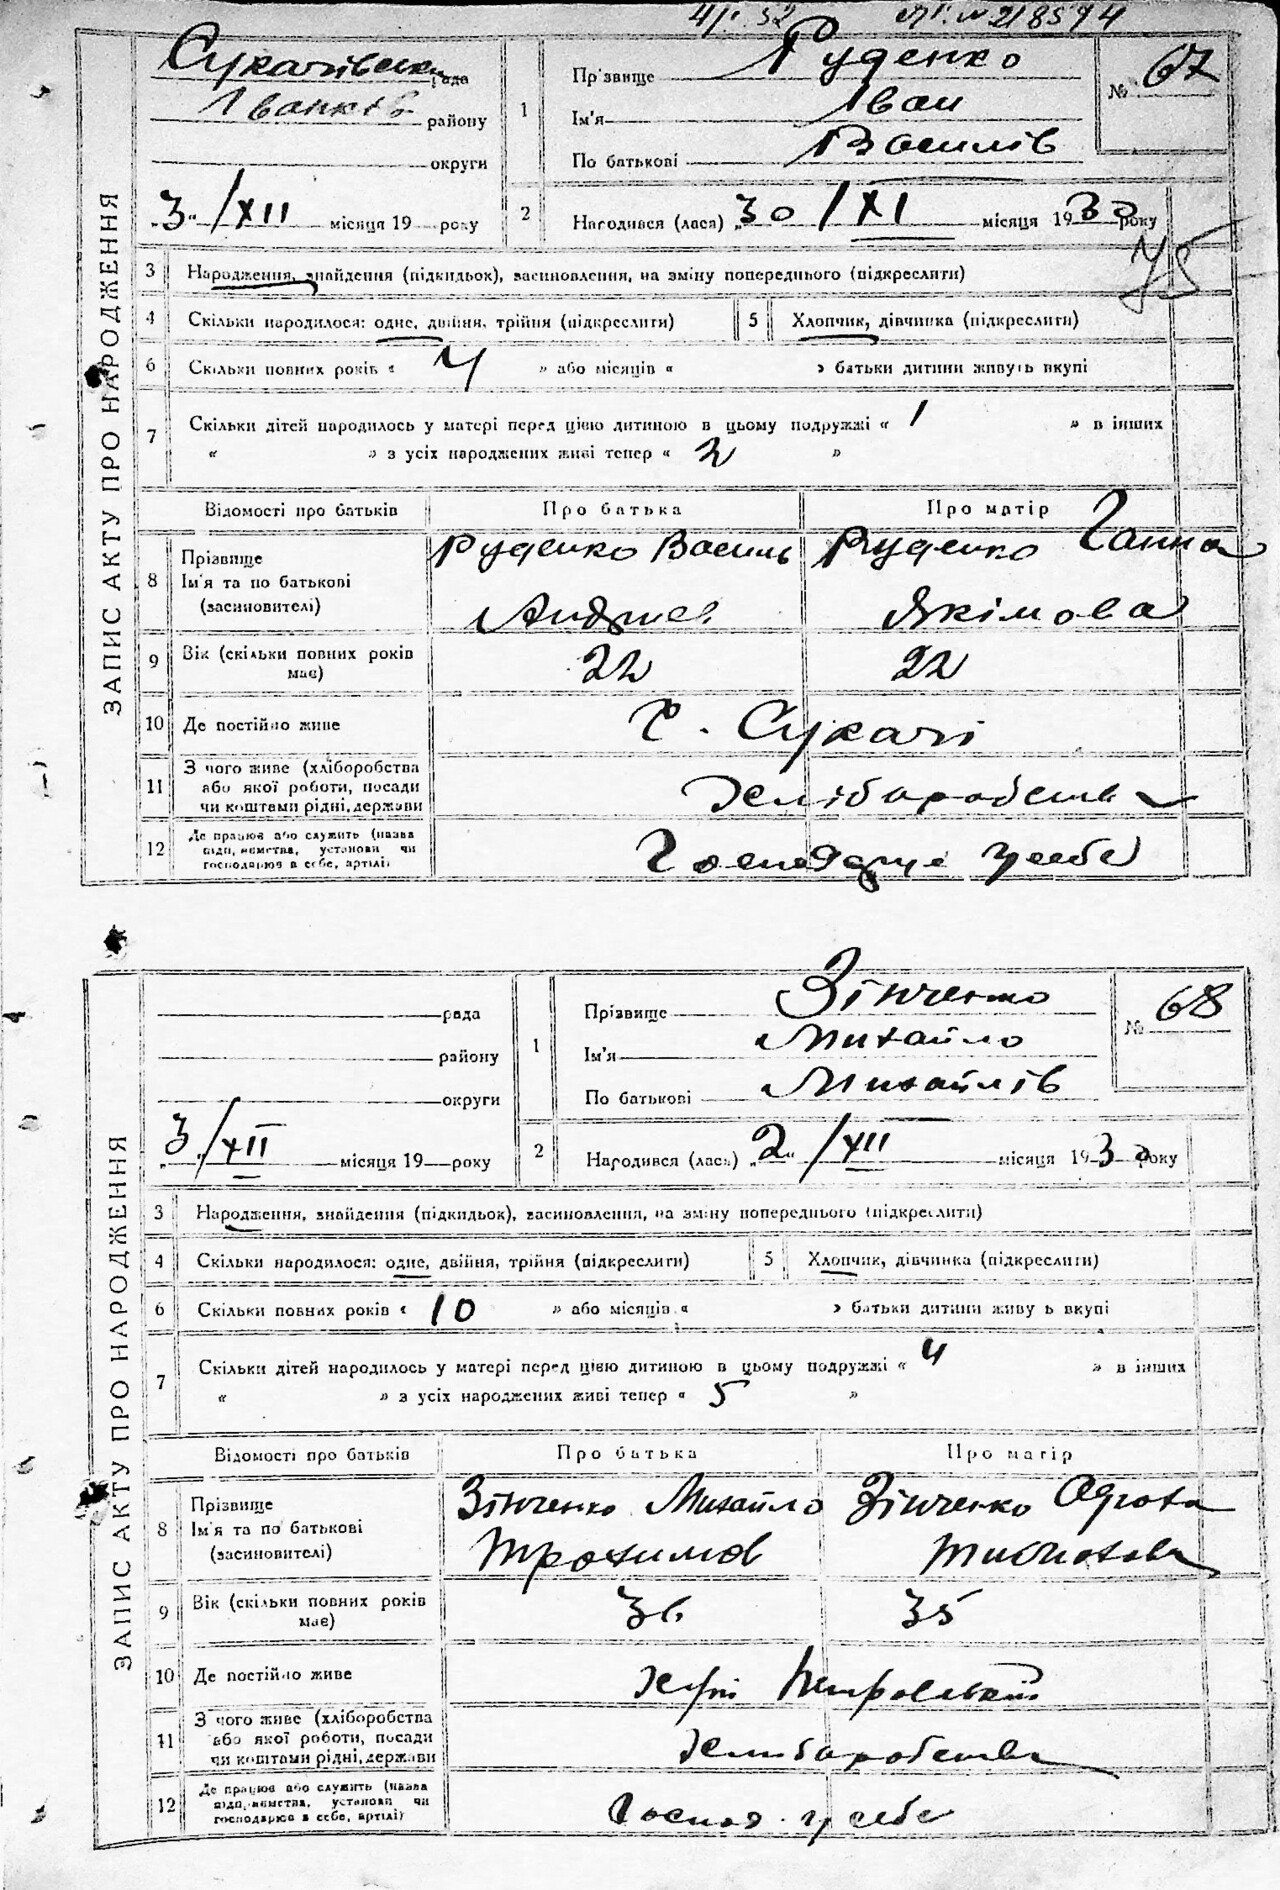 ЗАПИС АКТУ ПРО НАРОДЖЕННЯ
Сукачівська рада
Іванків району
округи
„3“/XII місяця 19 року
1 Прізвище Руденко
Ім'я Іван
По батькові Василів
№ 67
2 Народився (лася) „30/XI місяця 1930 року
75
3 Народження, знайдення (підкидьок), засиновлення, на зміну попереднього (підкреслити)
4 Скільки народилося: одне, двійня, трійня (підкреслити) 5 Хлопчик, дівчинка (підкреслити)
6 Скільки повних років « 4 » або місяців « » батьки дитини живуть вкупі
7 Скільки дітей народилось у матері перед цією дитиною в цьому подружжі « 1 » в інших
« » з усіх народжених живі тепер « 2 »
Відомості про батьків Про батька Про матір
8 Прізвище Ім'я та по батькові (засиновителі) Руденко Василь Руденко Ганна
Андриєв Якімова
9 Вік (скільки повних років має) 22 22
10 Де постійно живе с. Сукачі
11 З чого живе (хліборобства або якої роботи, посади чи коштами рідні, держави Хліборобства
12 Де працює або служить (назва підприємства, установи чи господарює в себе, артілі) Господарує у себе
ЗАПИС АКТУ ПРО НАРОДЖЕННЯ
рада
району
округи
„3“/XII місяця 19 року
1 Прізвище Зінченко
Ім'я Михайло
По батькові Михайлів
№ 68
2 Народився (лася) „2“/XII місяця 1930 року
3 Народження, знайдення (підкидьок), засиновлення, на зміну попереднього (підкреслити)
4 Скільки народилося: одне, двійня, трійня (підкреслити) 5 Хлопчик, дівчинка (підкреслити)
6 Скільки повних років « 10 » або місяців « » батьки дитини живуть вкупі
7 Скільки дітей народилось у матері перед цією дитиною в цьому подружжі « 4 » в інших
« » з усіх народжених живі тепер « 5 »
Відомості про батьків Про батька Про матір
8 Прізвище Ім'я та по батькові (засиновителі) Зінченко Михайло Зінченко
Трохимов
9 Вік (скільки повних років має) 36 35
10 Де постійно живе Хутір
11 З чого живе (хліборобства або якої роботи, посади чи коштами рідні, держави Хліборобства
12 Де працює або служить (назва підприємства, установи чи господарює в себе, артілі) Господ. у себе